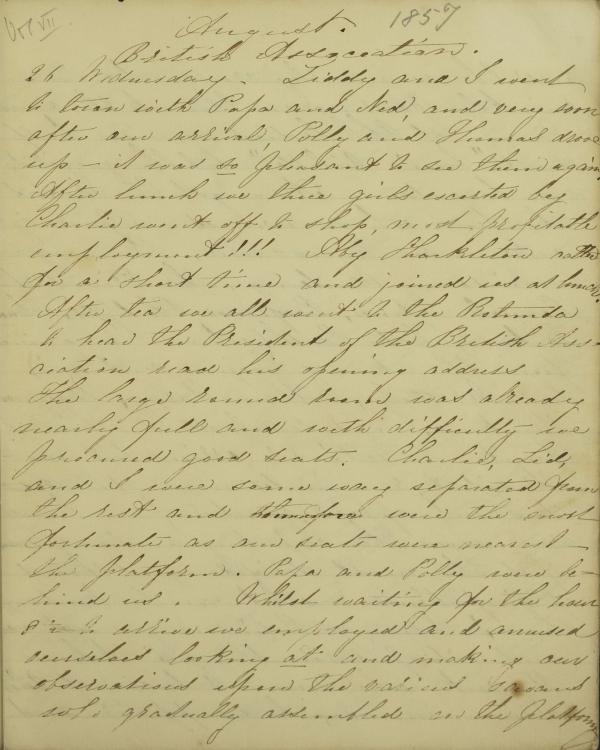 Vol VII
August. 1857
British Association.
26 Wednesday - Liddy and I went
to town with Papa and Ned, and very soon
after our arrival, Polly and Thomas drove
up - it was so pleasant to see them again
After lunch we three girls escorted by
Charlie went off to shop, most profitable
employment!!! Aby Shackleton called
for a short time and joined us at lunch.
After tea we all went to the Rotunda
to hear the President of the British Asso-
ciation read his opening address
The large round room was already
nearly full and with difficulty we
procured good seats. Charlie, Lid,
and I were some way separated from
the rest and were the most
fortunate as our seats were nearest
the platform. Papa and Polly were be-
hind us. Whilst waiting for the hour
8½ to arrive we employed and amused
ourselves looking at and making our
observations upon the various savans
who gradually assembled on the platform